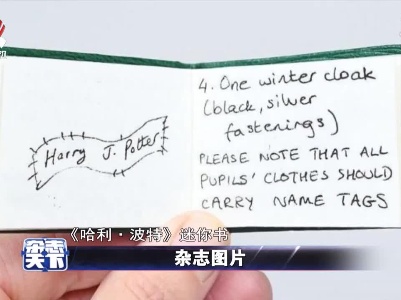 Harry J. Potter
4. One winter cloak
(black, silver
fastenings)
PLEASE NOTE THAT ALL
PUPILS' CLOTHES SHOULD
CARRY NAME TAGS
《哈利·波特》迷你书
杂志天下
杂志图片